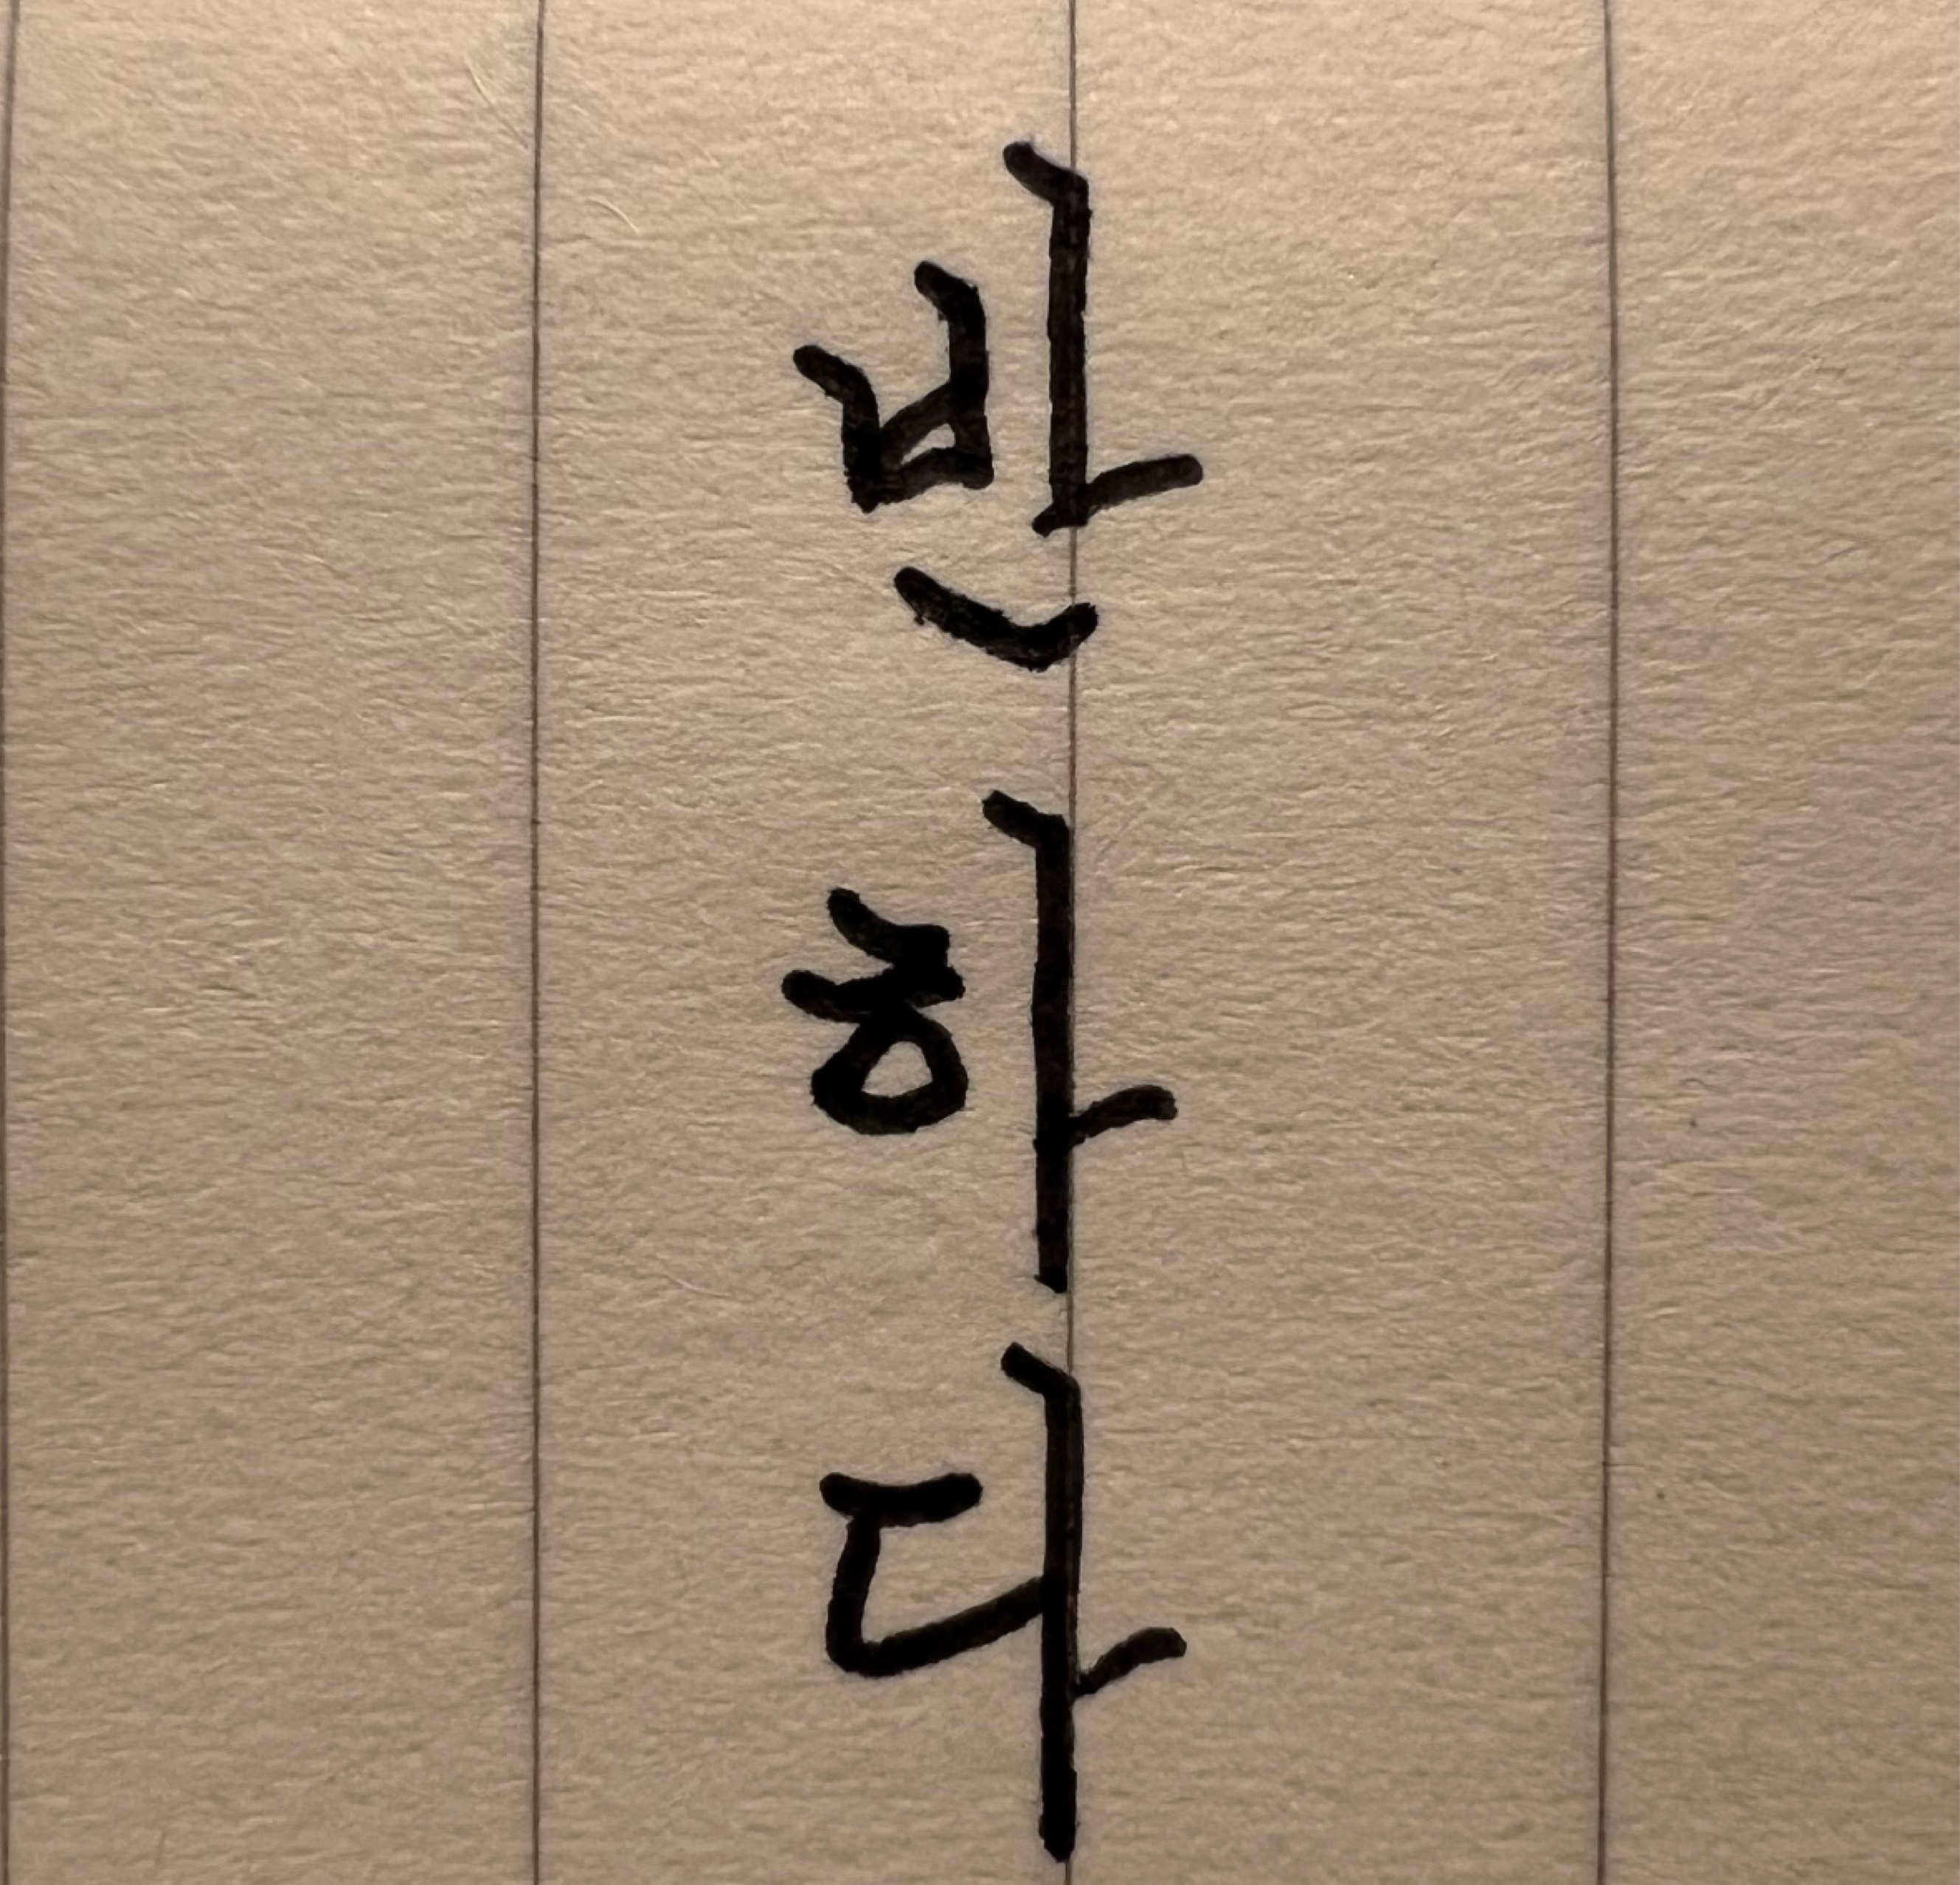 반하다